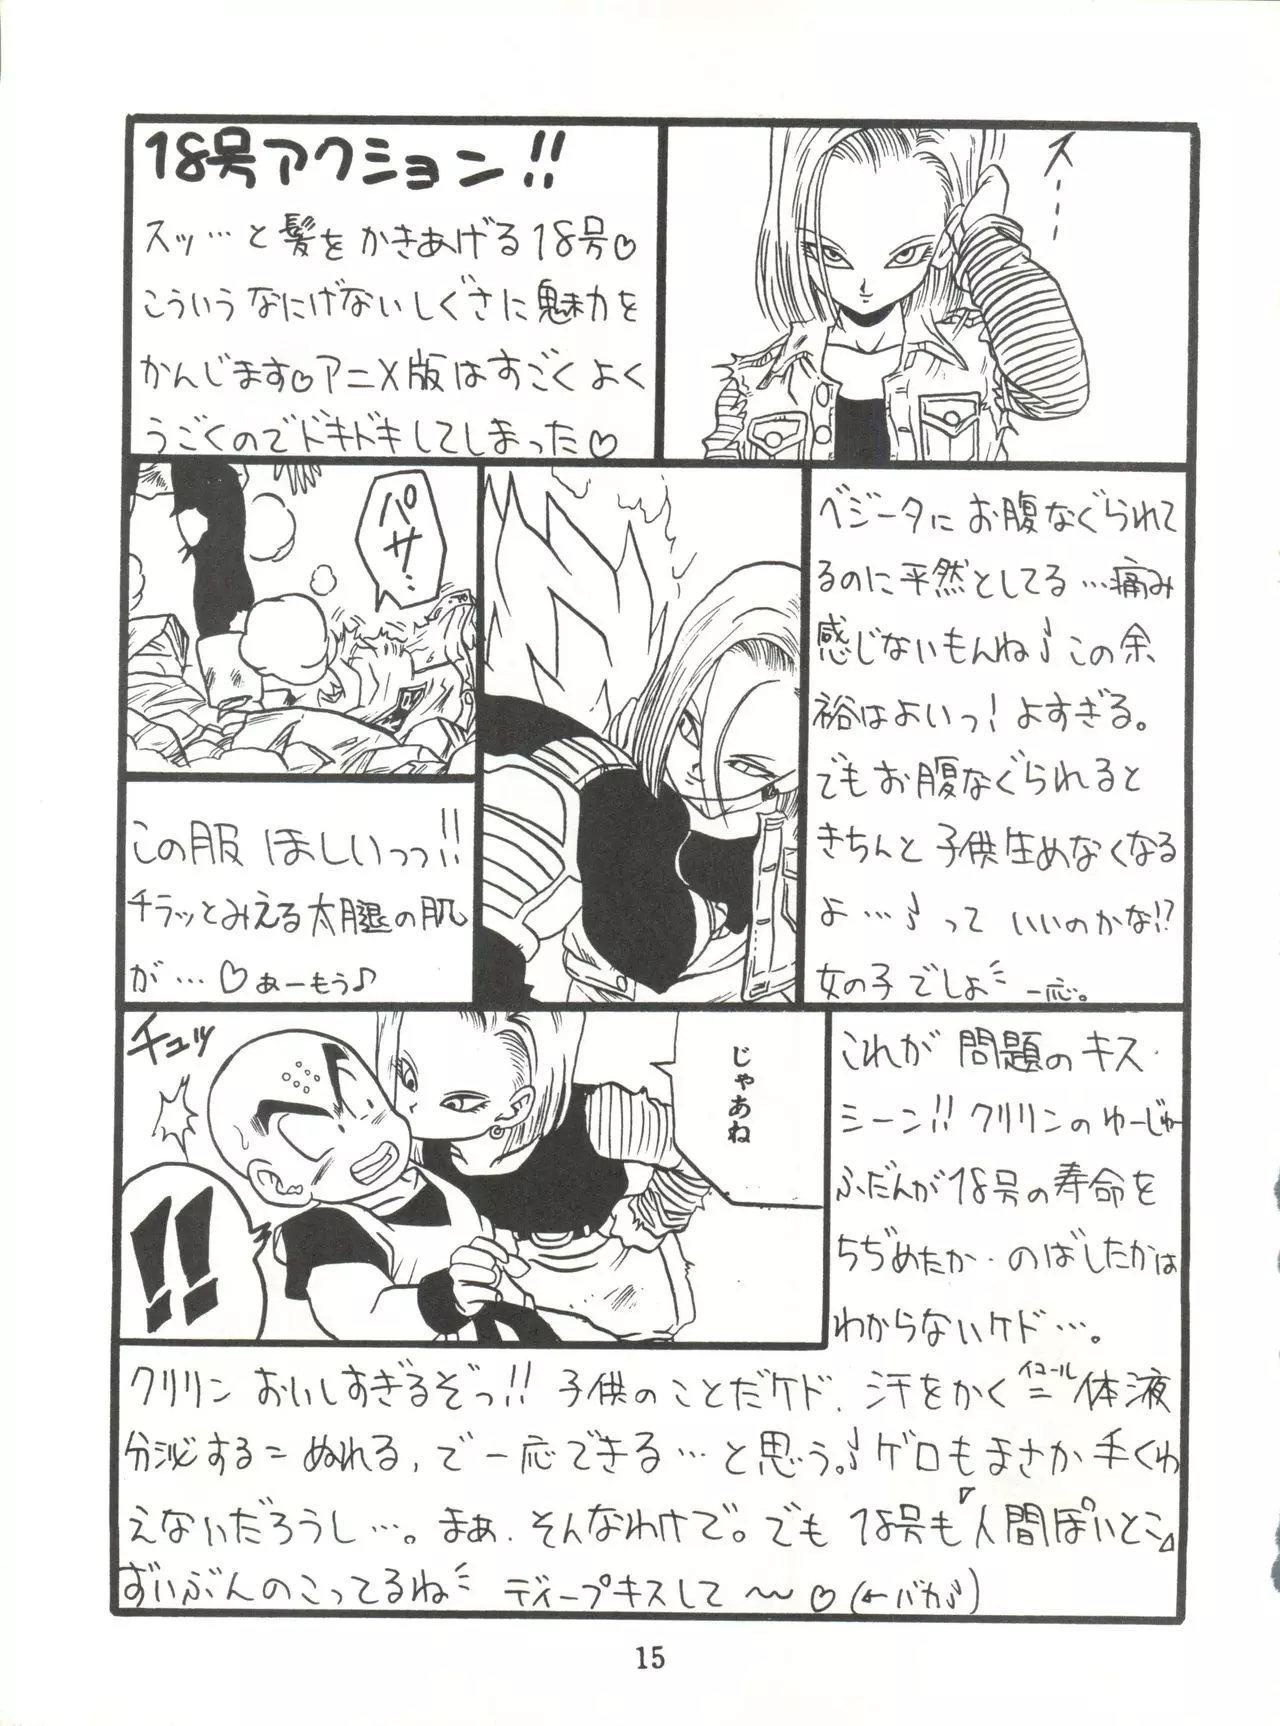 18号アクション!!
スッ…と髪をかきあげる18号♡
こういうなにげないしぐさに魅力を
かんじます♡アニメ版はすごくよく
うごくのでドキドキしてしまった♡
スーー
パサ…
ベジータにお腹なぐられて
るのに平然としてる…痛み
感じないもんね♪この余
裕はよいっ!よすぎる。
でもお腹なぐられると
きちんと子供生めなくなる
よ…♪って いいのかな!?
女の子でしょ 一応。
この服 ほしいっっ!!
チラッとみえる太腿の肌
が…♡あーもう♪
チュッ
じゃあね
!!
これが問題のキス・
シーン!!クリリンのゆーじゅー
ふだんが18号の寿命を
ちぢめたか・のばしたかは
わからないケド…。
クリリン おいしすぎるぞっ!!子供のことだケド、汗をかく=イコール体液
分泌する=ぬれる、で一応できる…と思う。♪ゲロもまさか手くわ
えないだろうし…。まぁ、そんなわけで。でも 18号も『人間ぽいとこ』
ずいぶんのこってるね ディープキスして〜♡(←バカ♪)
15